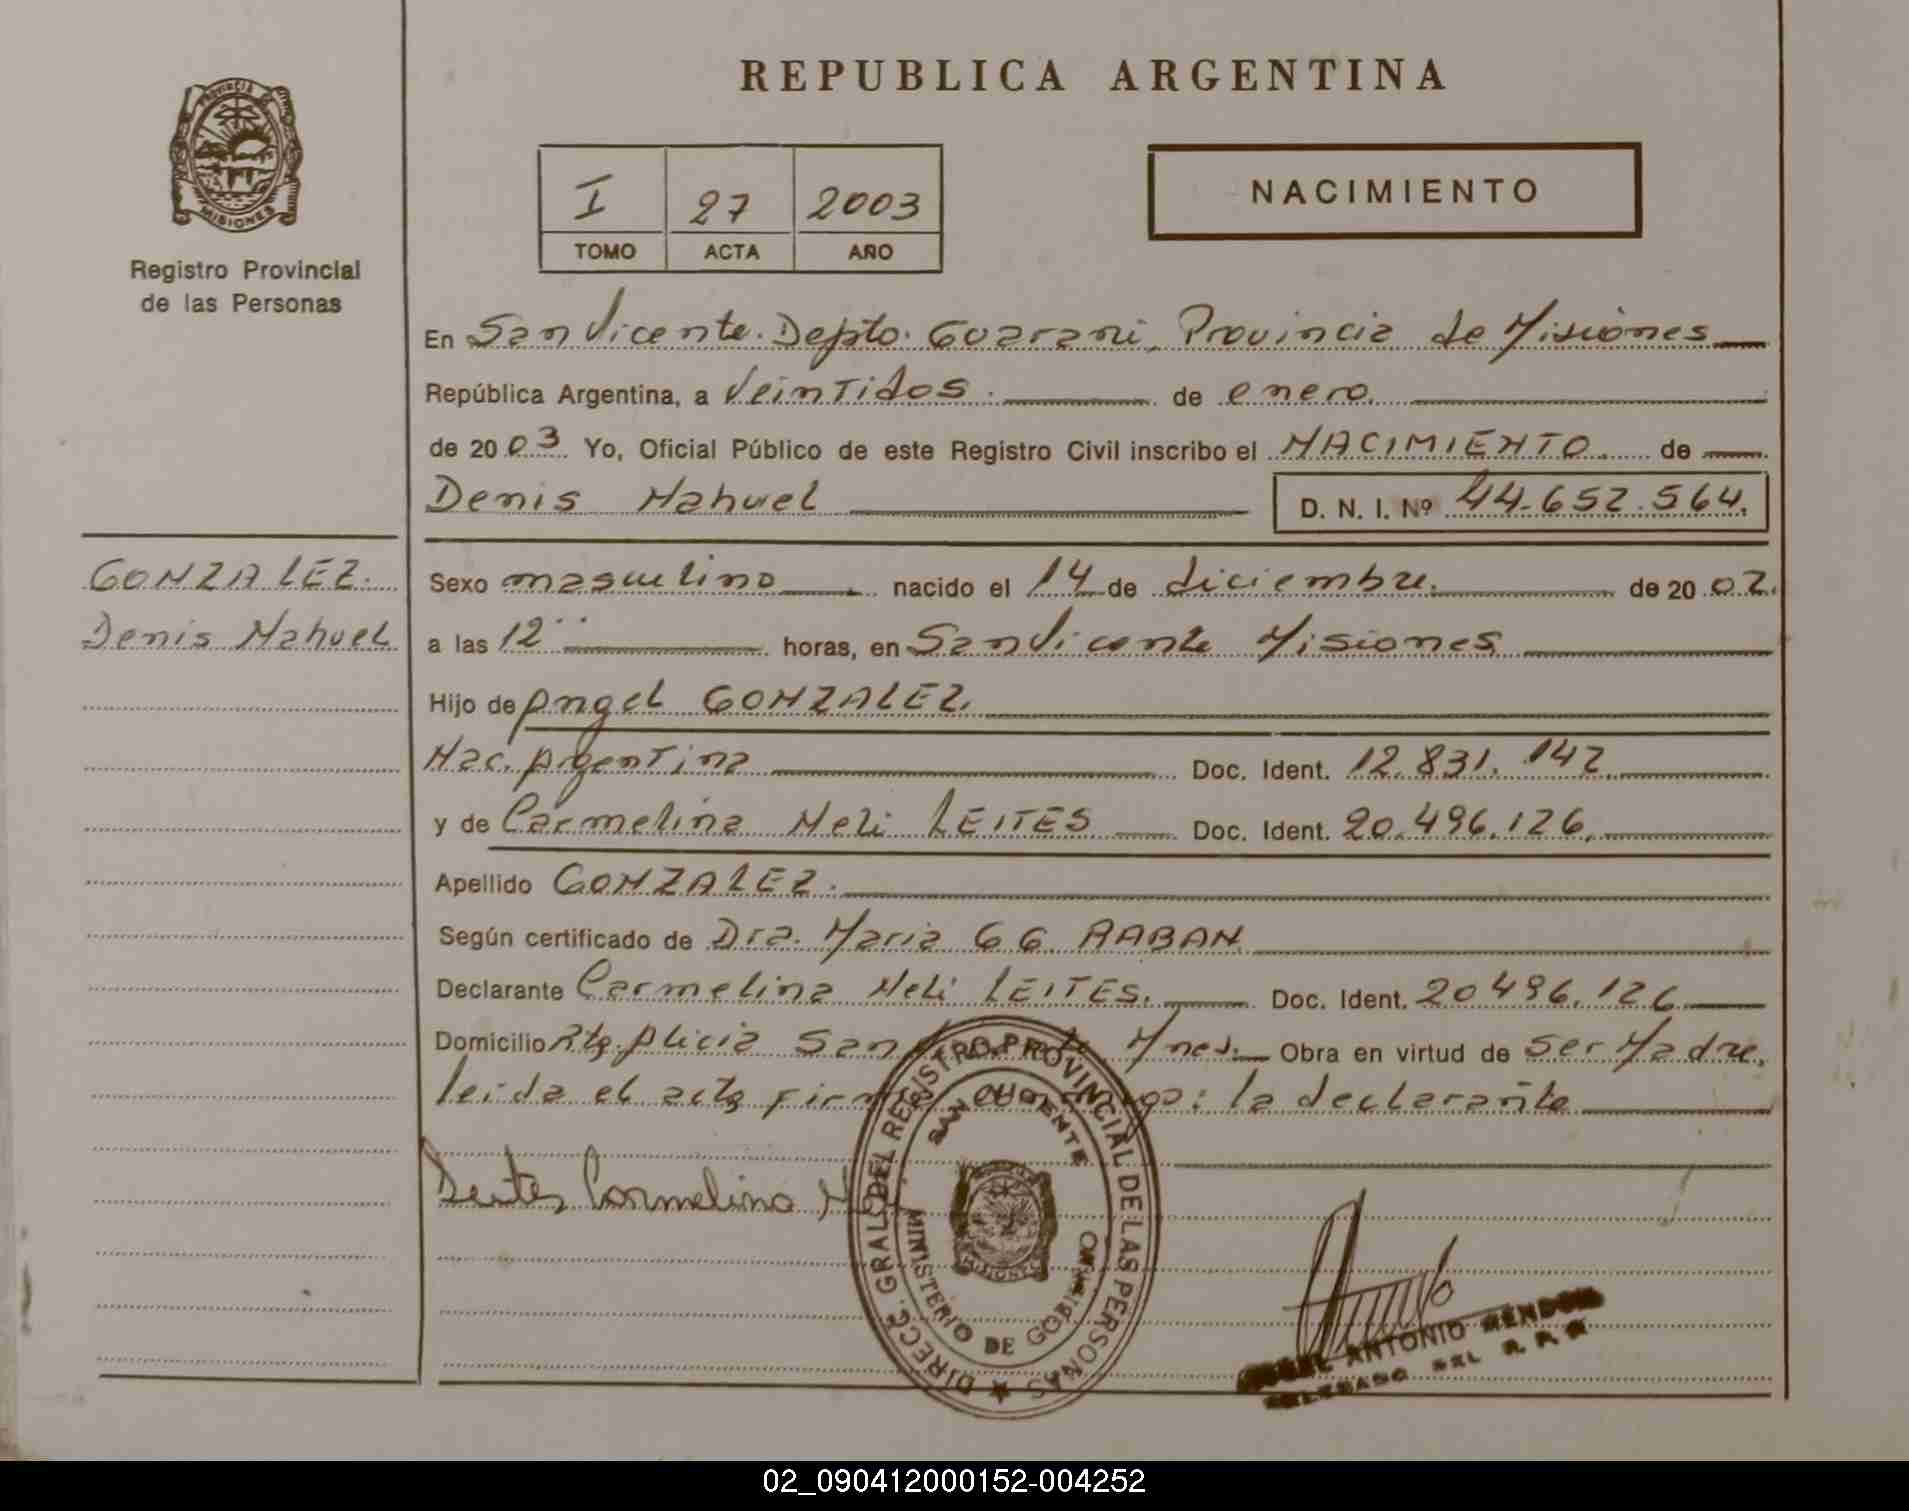 REPUBLICA ARGENTINA
PROVINCIA DE
MISIONES
Registro Provincial
de las Personas
I 27 2003
TOMO ACTA AÑO
NACIMIENTO
En San Vicente. Depto. Guarani, Provincia de Misiones
República Argentina, a Veintidos. de enero.
de 2003 Yo, Oficial Público de este Registro Civil inscribo el NACIMIENTO. de
Denis Nahuel D. N. I. Nº 44.652.564.
GONZALEZ.
Denis Nahuel
Sexo masculino nacido el 14 de diciembre. de 2002.
a las 12 horas, en San Vicente Misiones
Hijo de Angel GONZALEZ.
Nac. Argentina Doc. Ident. 12.831.142
y de Carmelina Neli LEITES Doc. Ident. 20.496.126.
Apellido GONZALEZ.
Según certificado de Dra. Maria G G RABAN
Declarante Carmelina Neli LEITES. Doc. Ident. 20496.126
Domicilio Alicia San Mnes. Obra en virtud de Ser Madre.
leida el acta firma conmigo: la declarante
Leites Carmelina N
DIRECC. GRAL. DEL REGISTRO PROVINCIAL DE LAS PERSONAS
SAN VICENTE
MISIONES
MINISTERIO DE GOBIERNO
ANTONIO MENDOZA
DEL R. P.
02_090412000152-004252